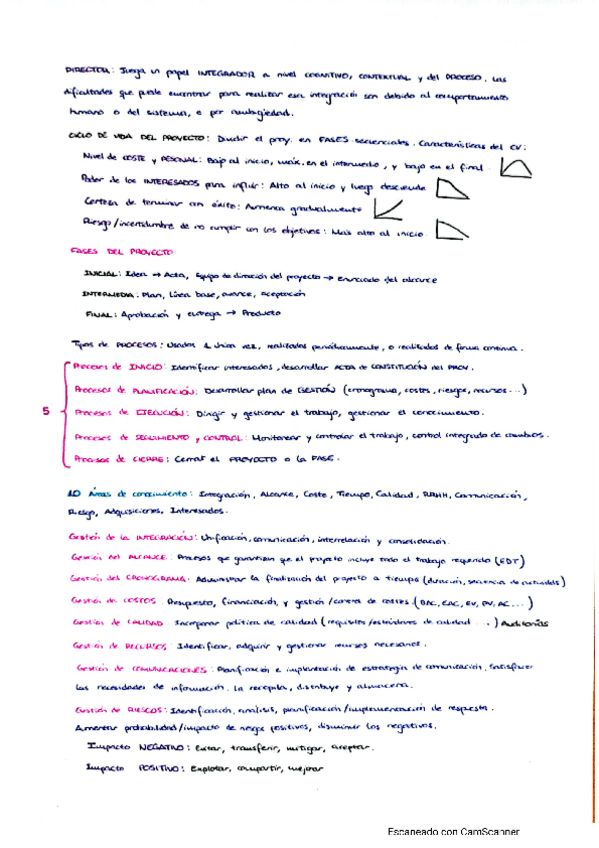 DIRECTOR: Juega un papel INTEGRADOR a nivel COGNITIVO, CONTEXTUAL y del PROCESO. Las
dificultades que puede encontrar para realizar esa integración son debido al comportamiento
humano o del sistema, o por ambigüedad.
CICLO DE VIDA DEL PROYECTO: Dividir el proy. en FASES secuenciales. Características del CV:
Nivel de COSTE y PESONAL: Bajo al inicio, máx. en el intermedio, y bajo en el final
Poder de los INTERESADOS para influir: Alto al inicio y luego desciende
Certeza de terminar con éxito: Aumenta gradualmente
Riesgo/incertidumbre de no cumplir con los objetivos: Más alto al inicio
FASES DEL PROYECTO
INICIAL: Idea → Acta, Equipo de dirección del proyecto → Enunciado del alcance
INTERMEDIA: Plan, Línea base, avance, aceptación
FINAL: Aprobación y entrega → Producto
Tipos de PROCESOS: Usados 1 única vez, realizados periódicamente, o realizados de forma continua.
Procesos de INICIO: Identificar interesados, desarrollar ACTA de CONSTITUCIÓN del PROY.
Procesos de PLANIFICACIÓN: Desarrollar plan de GESTIÓN (cronograma, costes, riesgos, recursos...)
5 Procesos de EJECUCIÓN: Dirigir y gestionar el trabajo, gestionar el conocimiento.
Procesos de SEGUIMIENTO y CONTROL: Monitorear y controlar el trabajo, control integrado de cambios.
Procesos de CIERRE: Cerrar el PROYECTO o la FASE.
10 Áreas de conocimiento: Integración, Alcance, Coste, Tiempo, Calidad, RRHH, Comunicación,
Riesgo, Adquisiciones, Interesados.
Gestión de la INTEGRACIÓN: Unificación, comunicación, interrelación y consolidación.
Gestión del ALCANCE: Procesos que garantizan que el proyecto incluye todo el trabajo requerido (EDT)
Gestión del CRONOGRAMA: Administrar la finalización del proyecto a tiempo (duración, secuencia de actividades)
Gestión de COSTOS: Presupuesto, financiación, y gestión/control de costes. (BAC, EAC, EV, PV, AC...)
Gestión de CALIDAD: Incorporar política de calidad (requisitos/estándares de calidad ...) Auditorías
Gestión de RECURSOS: Identificar, adquirir y gestionar recursos necesarios.
Gestión de COMUNICACIONES: Planificación e implantación de estrategia de comunicación. Satisfacer
las necesidades de información. La recopila, distribuye y almacena.
Gestión de RIESGOS: Identificación, análisis, planificación/implementación de respuesta.
Aumentar probabilidad/impacto de riesgos positivos, disminuir los negativos.
Impacto NEGATIVO: Evitar, transferir, mitigar, aceptar.
Impacto POSITIVO: Explotar, compartir, mejorar
Escaneado con CamScanner